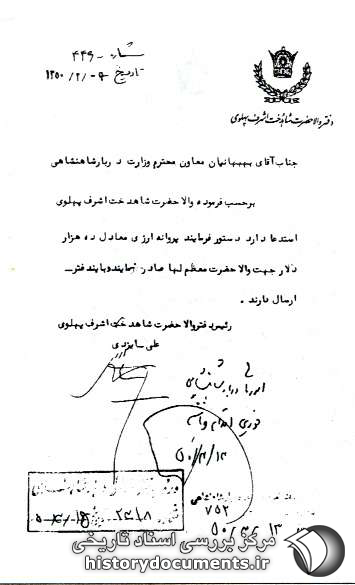 شماره ۴۴۶
تاریخ ۱۳۵۰/۲/۰۹
دفتر والاحضرت شاهدخت اشرف پهلوی
جناب آقای بهبهانیان معاون محترم وزارت دربار شاهنشاهی
برحسب فرموده والاحضرت شاهدخت اشرف پهلوی
استدعا دارد دستور فرمایند پروانه ارزی معادل ده هزار
دلار جهت والاحضرت معظم لها صادر نمایند و باین دفتر
ارسال دارند .
رئیس دفتر والاحضرت شاهدخت اشرف پهلوی
علی ایزدی
فوری اقدام
۵۰/۲/۱۲
۲۳۱۸
۷۵۲
مرکز بررسی اسناد تاریخی
historydocuments.ir